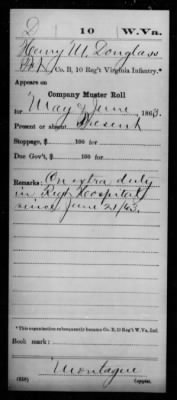 D | 10 | W.Va.
Henry M. Douglass
Pvt., Co. B, 10 Reg't Virginia Infantry.*
Appears on
Company Muster Roll
for May & June, 1863.
Present or absent Present
Stoppage, $ 100 for
Due Gov't, $ 100 for
Remarks: On extra duty
in Regt Hospital
since June 21/63.
*This organization subsequently became Co. B, 10 Reg't W. Va. Inf.
Book mark:
Montague
(858) Copyist.